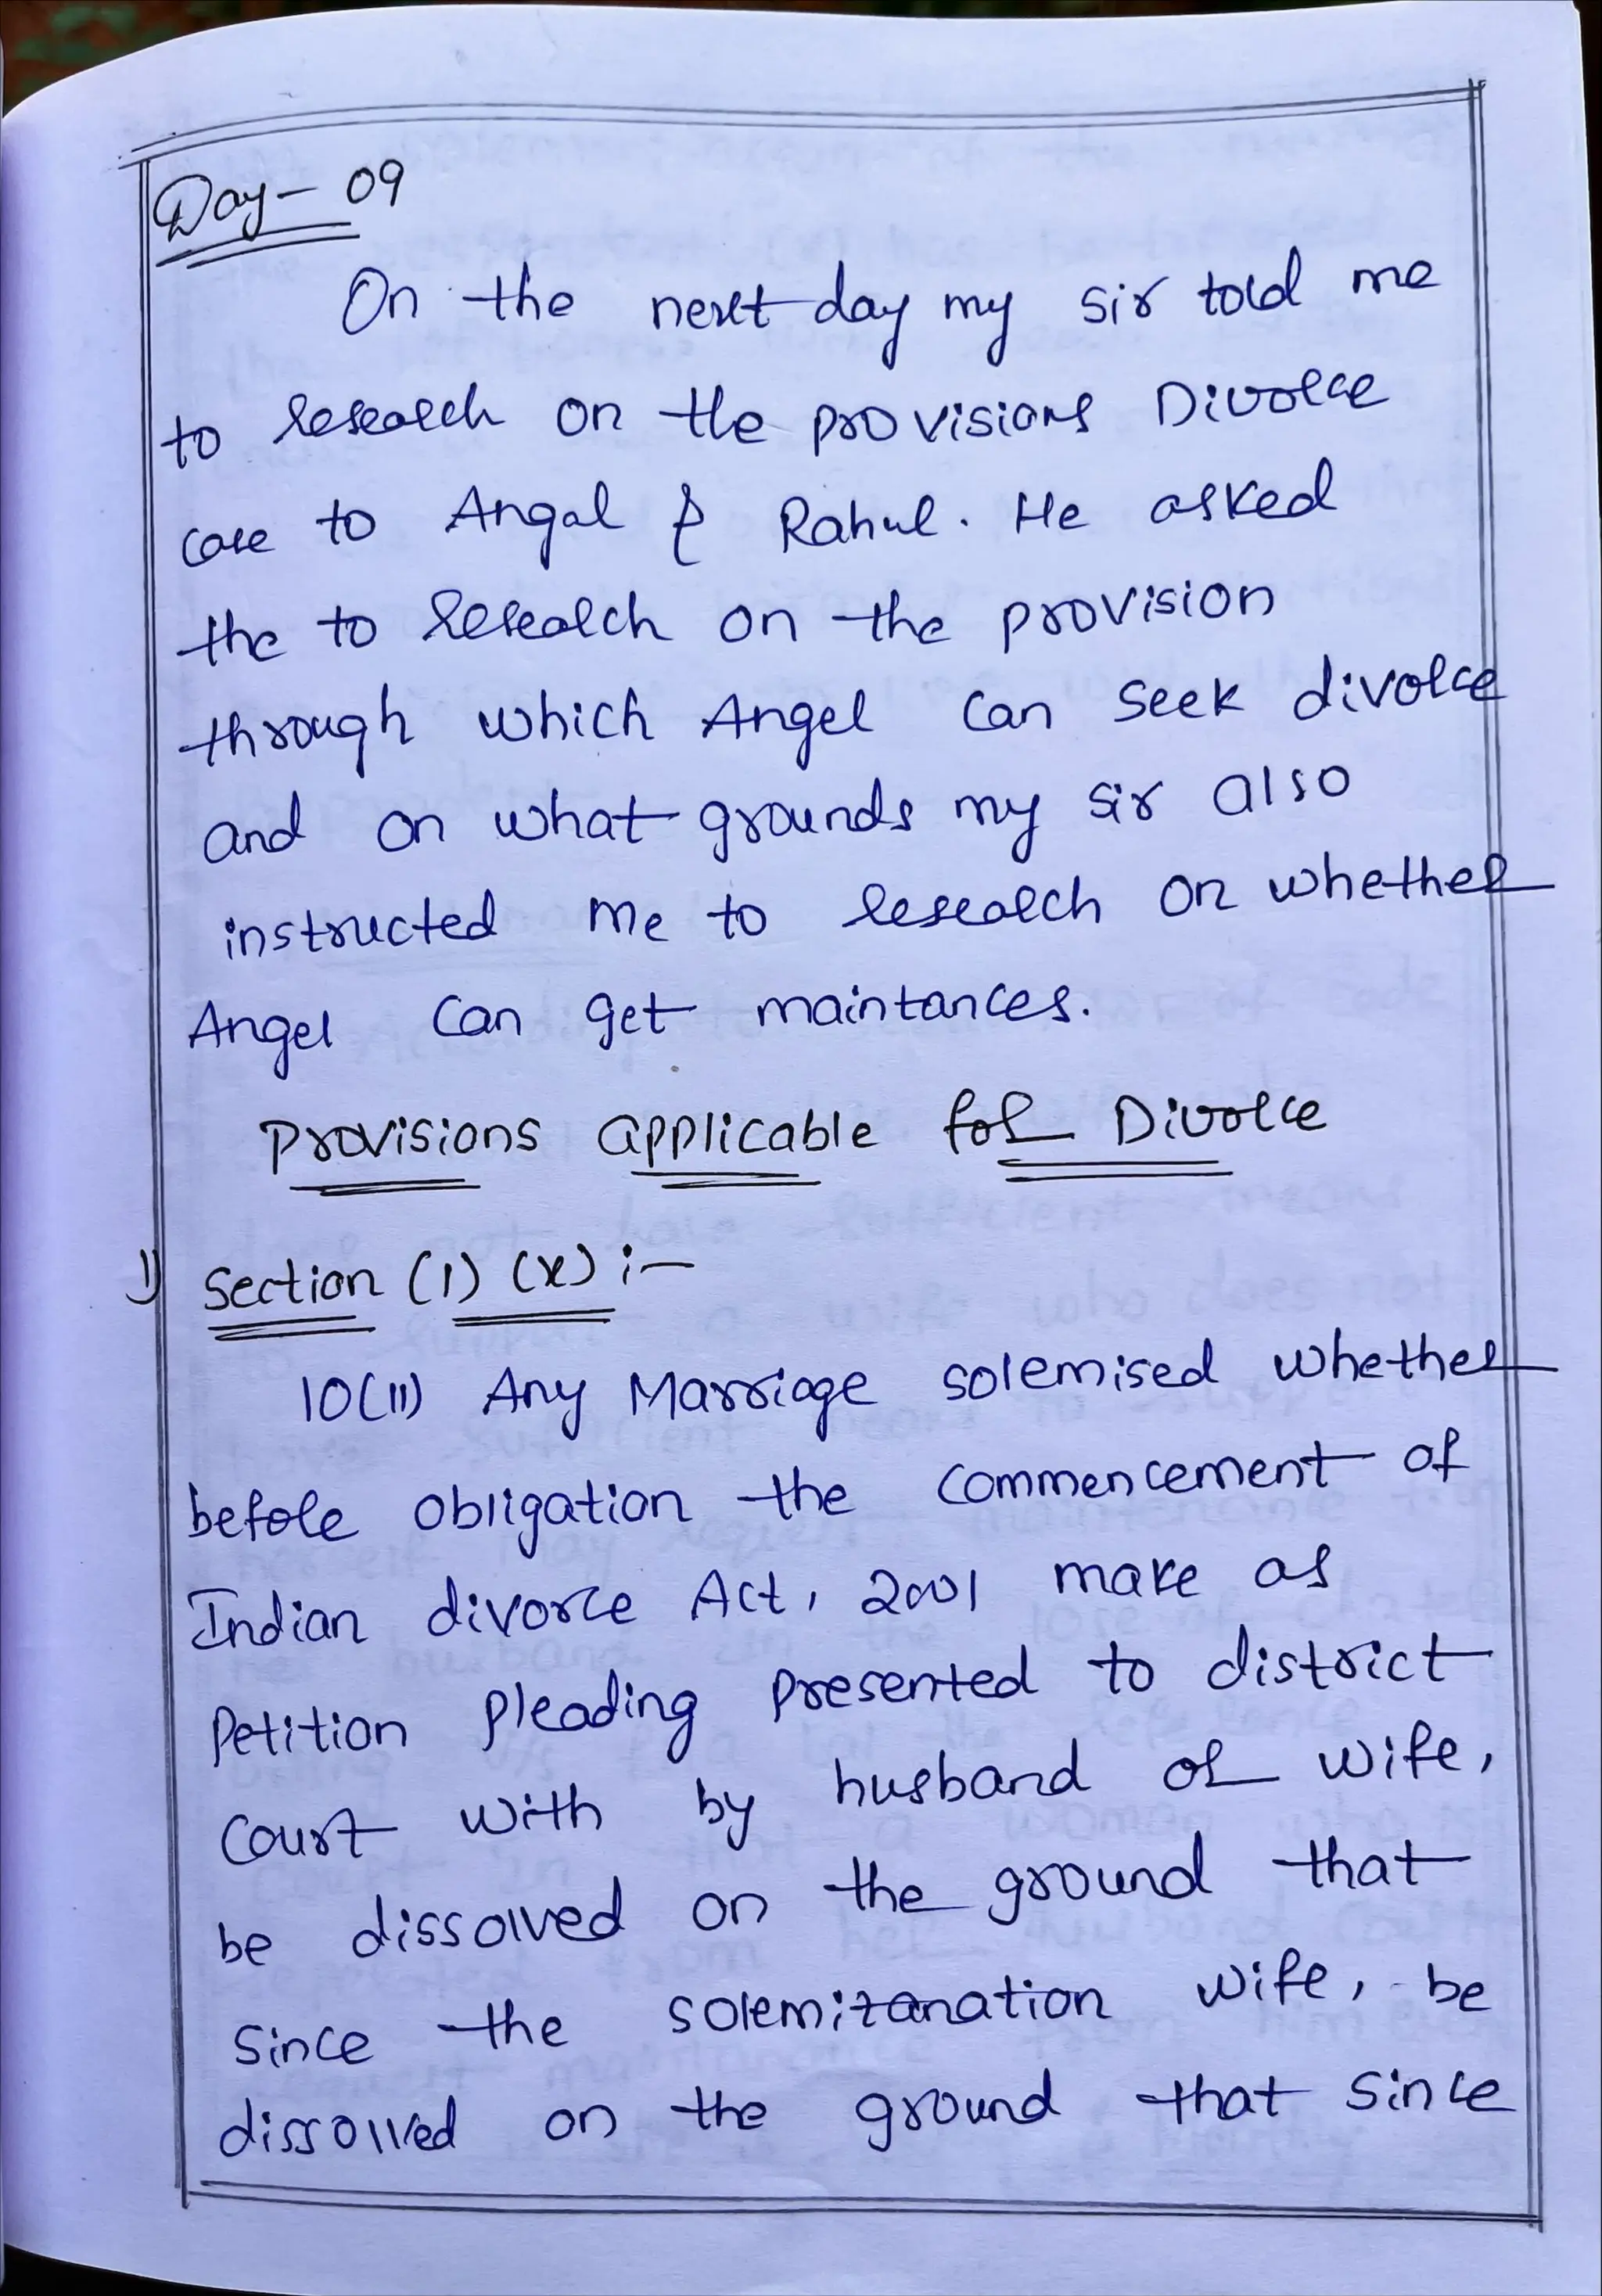 Day- 09
On the next day my sir told me
to research on the provisions Divorce
case to Angal & Rahul. He asked
the to research on the provision
through which Angel can seek divorce
and on what grounds my sir also
instructed me to research on whether
Angel can get maintances.
Provisions applicable for Divorce
1) Section (1) (x) :-
10(11) Any Marriage solemised whether
before obligation the commencement of
Indian divorce Act, 2001 make as
Petition pleading presented to district
Court with by husband or wife,
be dissolved on the ground that
since the solemizanation wife, be
dissolved on the ground that since